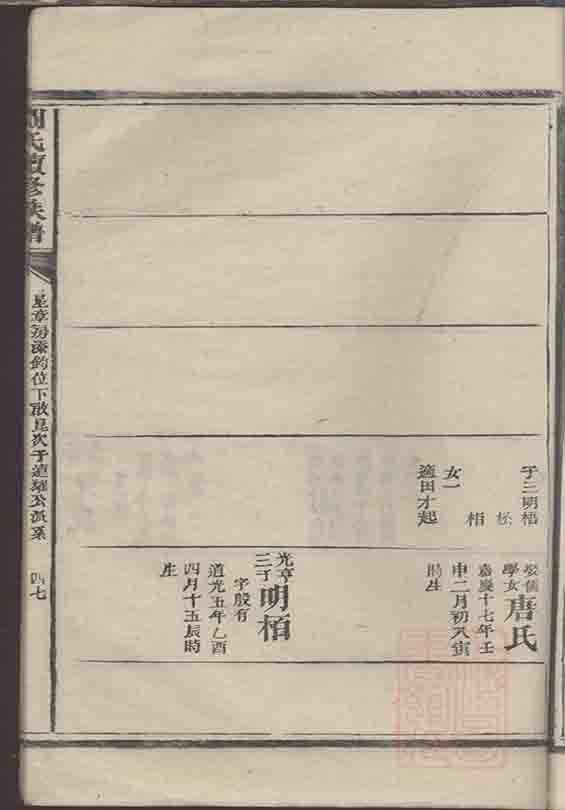 子三明梧
松
栢
女一
適田才起
娶儒
學女
唐氏
嘉慶十七年壬
申二月初八寅
時生
光亨
三子
明栢
字殷有
道光五年乙酉
四月十五辰時
生
氏續修族譜
星章房添鈞位下啟昆次子連耀公派系
四七